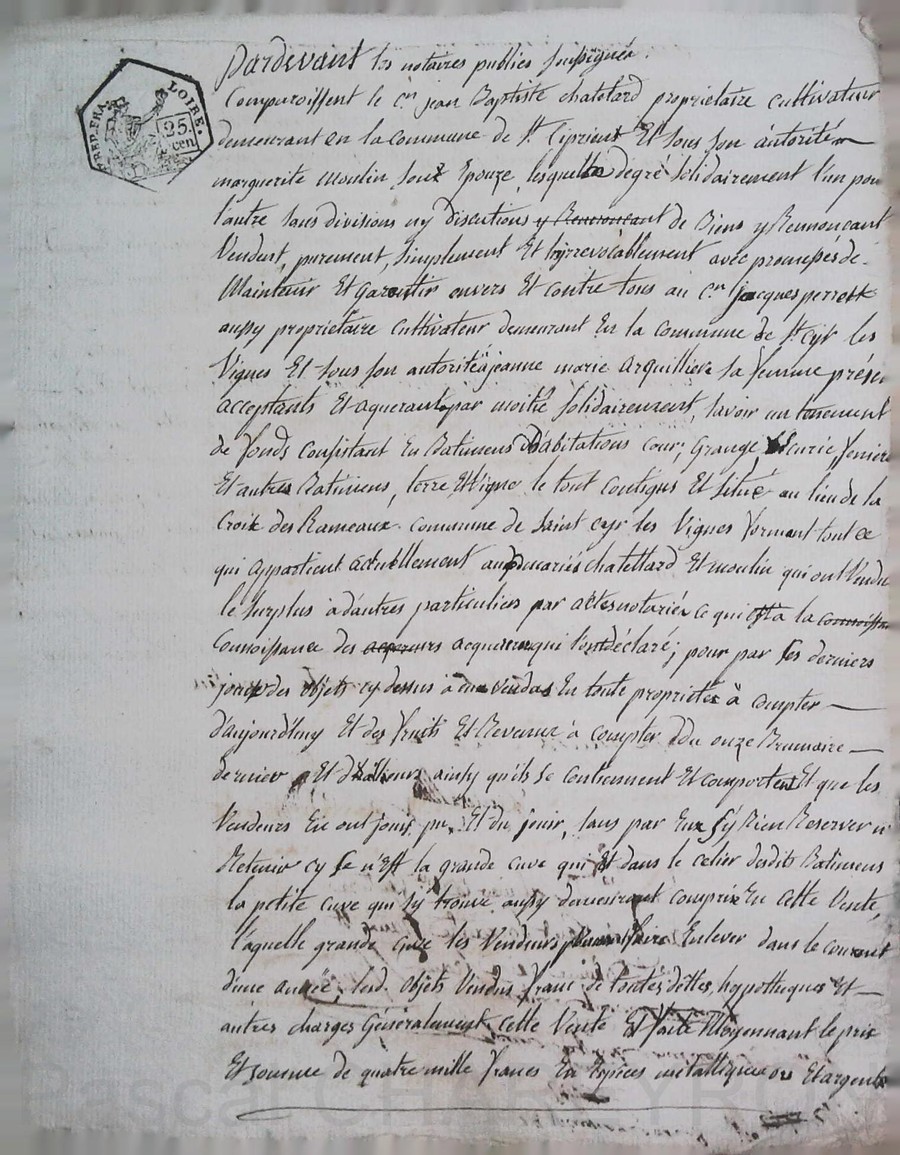 REP. FRA.
LOIRE.
25.
cen
pardevant les notaires publics soussignés.
Comparoissent le cen jean Baptiste chatelard propriétaire cultivateur
demeurant en la commune de St. Ciprient Et sous son autorité
marguerite moulin son Epouze, lesquels degré solidairement l'un pour
l'autre sans divisions ny discutions y Renoncant de Biens y Rennonçant
Vendent, purement, simplement Et hyrrevocablement avec promesses de
Maintenir Et garentir envers Et contre tous au cen jacques perret
aussy propriétaire cultivateur demeurant En la commune de St cyr les
Vignes Et sous son autorité à jeanne marie arquilliere sa femme présen
acceptants Et aquerant par moitié solidairement, savoir un tenement
de fonds consistant En Batimens D'abitations cour, Grange, Ecurie, feniere
Et autres Batimens, terre Et vigne le tout contigus Et situé au lieu de la
Croix des Rameaux commune de Saint cyr les Vignes formant tout ce
qui appartient actuellement aux mariés chatellard Et moulin qui ont Vendu
le surplus à d'autres particuliers par actes notariés ce qui est a la connoissa
Connoissance des acquereurs qui l'ont déclaré; pour par les derniers
jouir des objets cy dessus à eux vendus En toute propriétés à compter
d'aujourd'huy Et des fruits Et Revenus à compter du onze Brumaire
dernier Et ainsy qu'ils se contiennent Et comportent Et que les
Vendeurs En ont jouis pu Et du jouir, sans par Eux s'y Rien Reserver n'y
Retenir cy ce n'Est la grande cuve qui Est dans le celier desdits Batimens
la petite cuve qui s'y trouve aussy demeurant comprise En cette Vente,
l'aquelle grande cuve les Vendeurs faire Enlever dans le courent
d'une année, lesd. objets Vendus franc de toutes dettes, hypotheques Et
autres charges Généralement cette Vente Est faite Moyennant le prix
Et somme de quatre mille francs En Espèces métalliques or Et argent